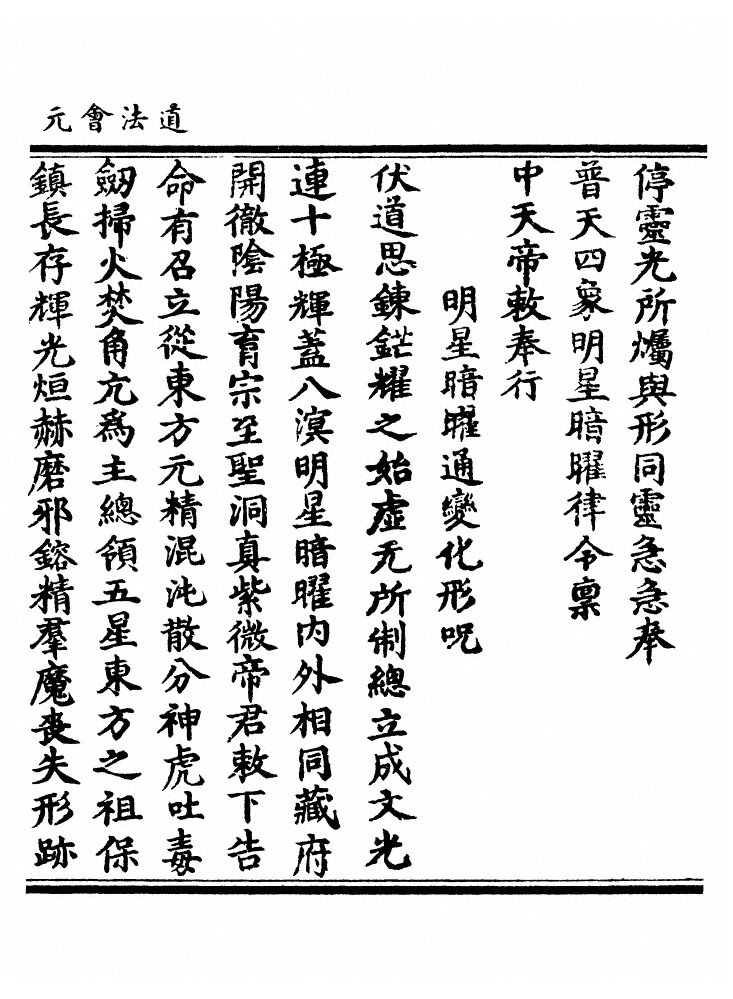 道法會元
停靈光所爥與形同靈急急奉
普天四象明星暗曜律令稟
中天帝敕奉行
明星暗曜通變化形呪
伏道思鍊鋩耀之始虛无所制總立成文光
連十極輝蓋八溟明星暗曜内外相同藏府
開徹陰陽育宗至聖洞真紫微帝君敕下告
命有召立從東方元精混沌散分神虎吐毒
劒掃火焚角亢為主總領五星東方之祖保
鎮長存輝光烜赫磨邪鎔精羣魔喪失形跡